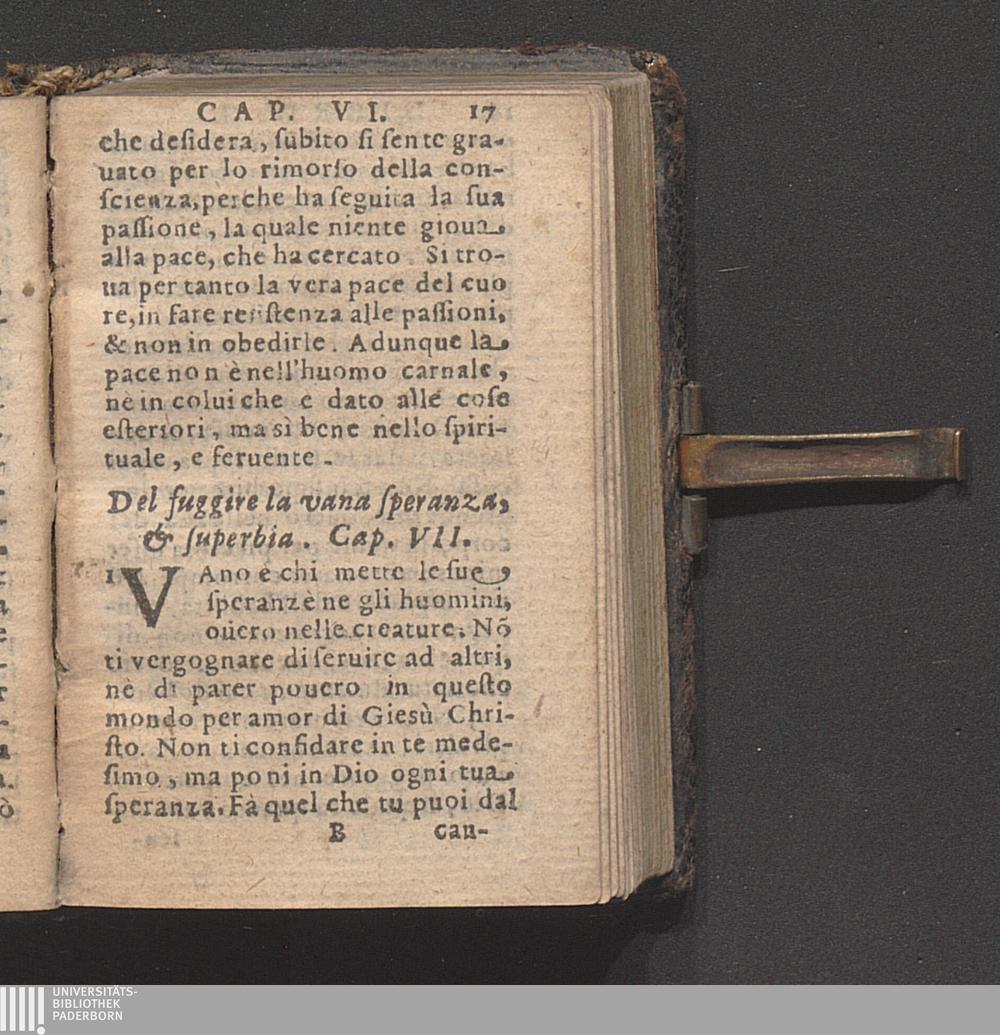 CAP. VI. 17
che desidera, subito si sente gra-
uato per lo rimorso della con-
scienza, perche ha seguita la sua
passione, la quale niente gioua
alla pace, che ha cercato. Si tro-
ua per tanto la vera pace del cuo
re, in fare resistenza alle passioni,
& non in obedirle. Adunque la
pace non è nell'huomo carnale,
nè in colui che e dato alle cose
esteriori, ma sì bene nello spiri-
tuale, e feruente.
Del fuggire la vana speranza,
& superbia. Cap. VII.
1 VAno è chi mette le sue
speranze ne gli huomini,
ouero nelle creature. Nõ
ti vergognare di seruire ad altri,
nè di parer pouero in questo
mondo per amor di Giesù Chri-
sto. Non ti confidare in te mede-
simo, ma poni in Dio ogni tua
speranza. Fà quel che tu puoi dal
B cau-
UNIVERSITÄTS-
BIBLIOTHEK
PADERBORN